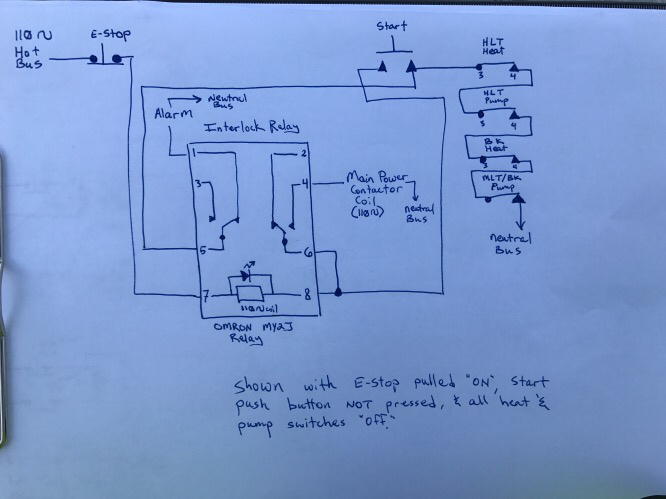 110~
Hot
Bus
E-Stop
Start
HLT
Heat
3 4
HLT
Pump
3 4
BK
Heat
3 4
MLT/BK
Pump
Neutral
Bus
Alarm
Neutral
Bus
Interlock Relay
1 2
3 4
5 6
7 8
110~coil
Main Power
Contactor
Coil
(110~)
neutral
Bus
OMRON MY2J
Relay
Shown with E-Stop pulled "ON", Start
push button NOT pressed, & all heat &
pump switches "off."